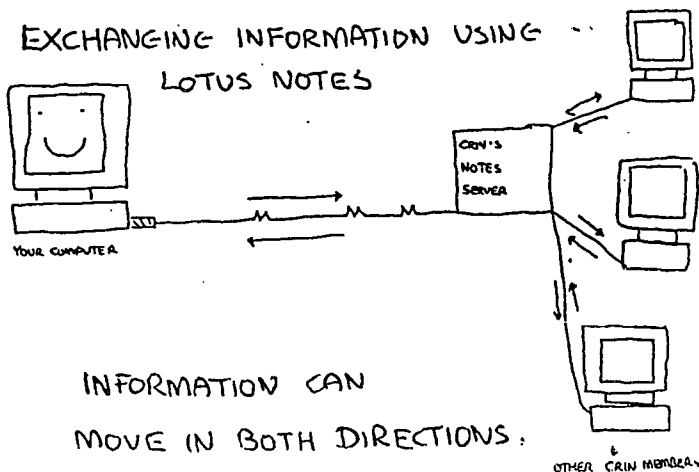 EXCHANGING INFORMATION USING
LOTUS NOTES
CRIN'S
NOTES
SERVER
YOUR COMPUTER
INFORMATION CAN
MOVE IN BOTH DIRECTIONS.
OTHER CRIN MEMBERS